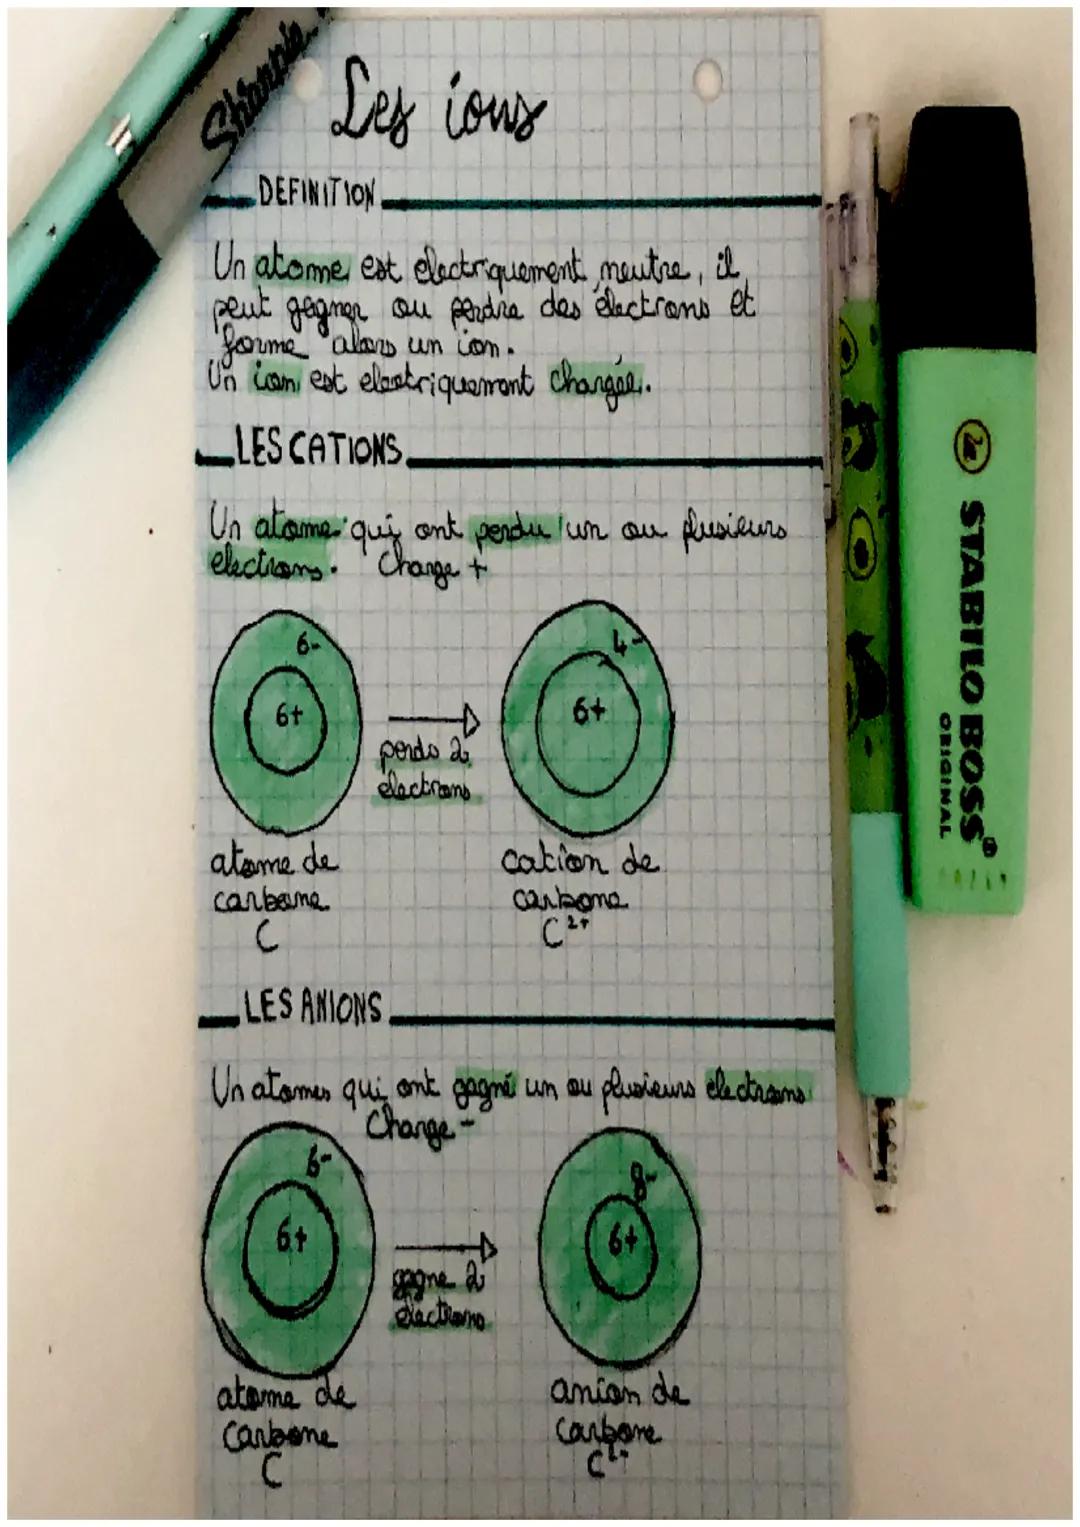 Sharpie
Les ions
DEFINITION
Un atome est electriquement neutre, il
peut gagner ou perdre des électrons et
forme alors un ion.
Un ion est electriquement chargée.
LES CATIONS
Un atome qui ont perdu un ou plusieurs
electrons. Charge +
6-
6+
perds 2
électrons
4-
6+
atome de
carbone
C
cation de
carbone
C²⁺
LES ANIONS
Un atomes qui ont gagné un ou plusieurs electrons
Charge -
6-
6+
gagne 2
électrons
8-
6+
atome de
carbone
C
anion de
carbone
C²⁻
STABILO BOSS®
ORIGINAL